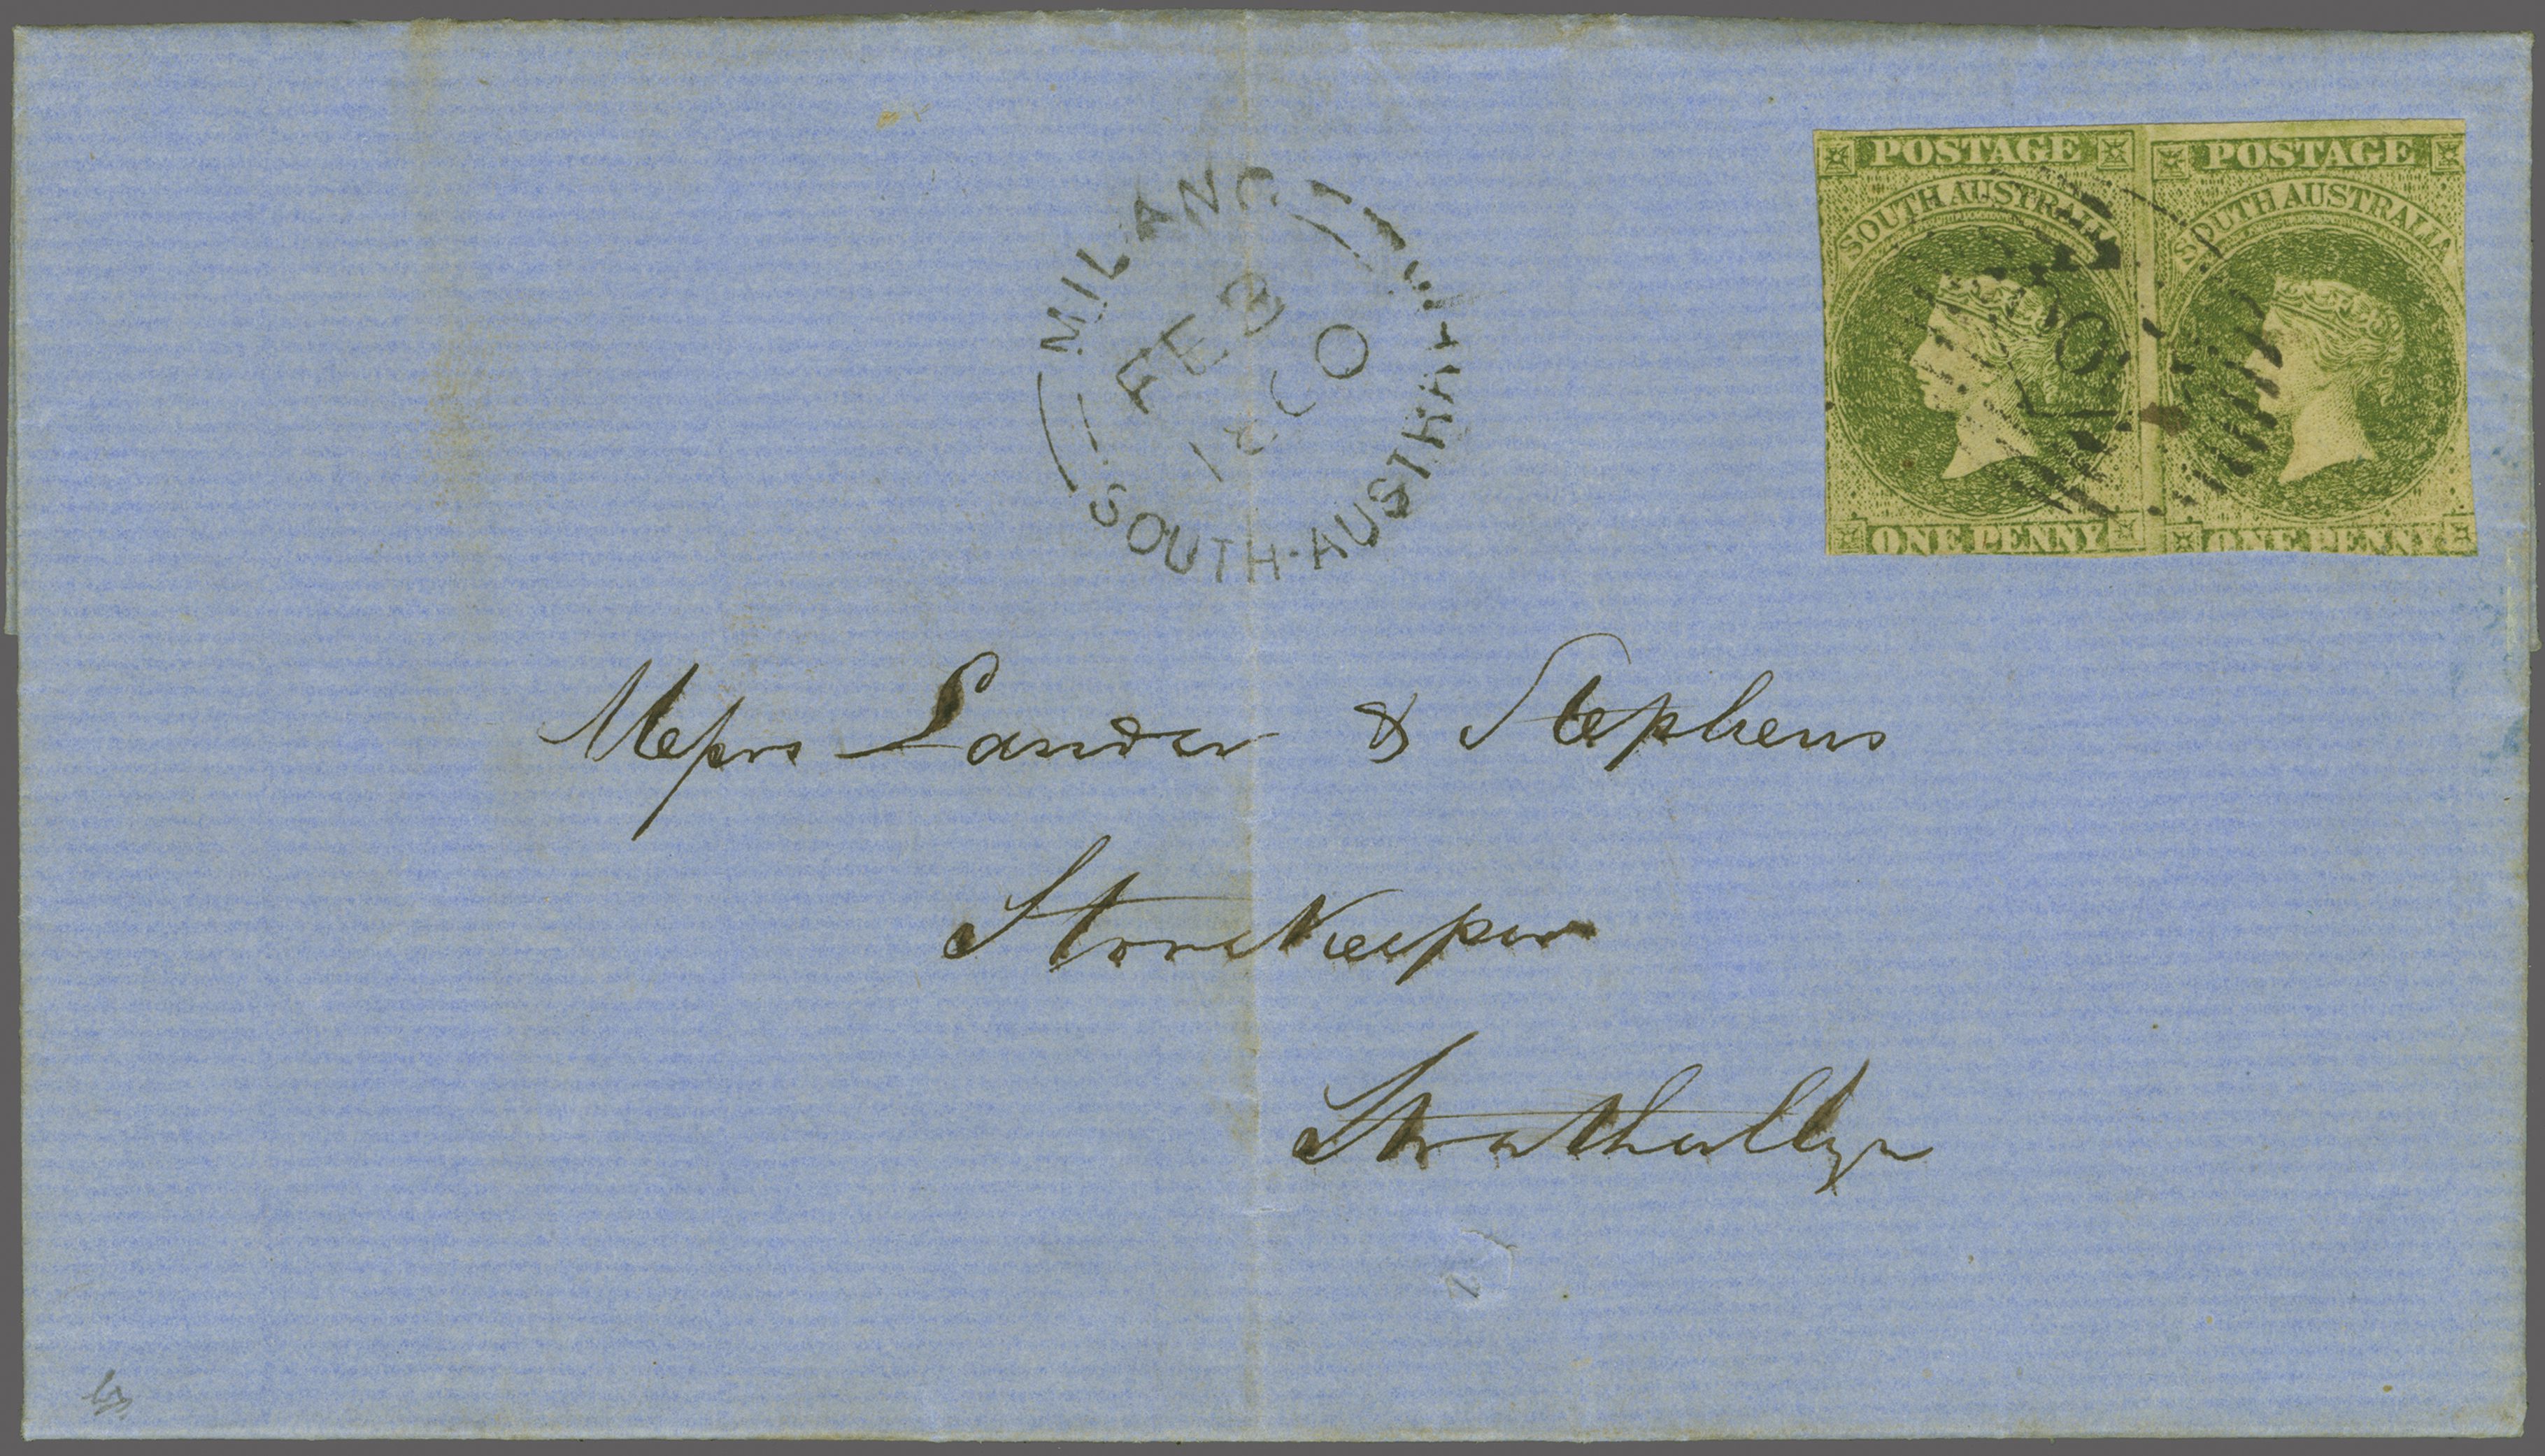 POSTAGE POSTAGE
SOUTH AUSTRALIA SOUTH AUSTRALIA
ONE PENNY ONE PENNY
MILANG
FEB
SOUTH·AUSTRALIA
Messrs Lander & Stephens
Storekeeper
Strathalbyn